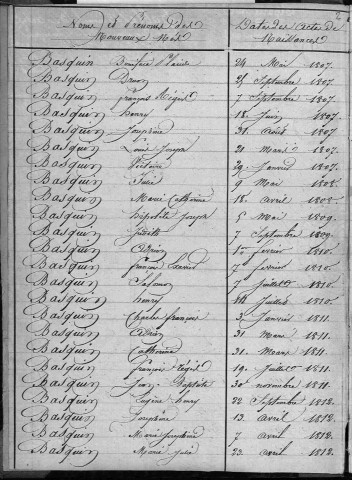 Noms et Prénoms des Nouveaux Nés
Dates des Actes de Naissances
Basquin 24 Mai 1807.
Basquin Bruno 25 Septembre 1807.
Basquin françois Régis 7 Septembre 1807.
Basquin henry 18 Juin 1807.
Basquin Joséphine 31 Août 1807.
Basquin Louis Joseph 20 Mars 1807.
Basquin 29 Janvier 1807.
Basquin Julie 9 Mai 1808.
Basquin Marie Catherine 18 avril 1808.
Basquin hipolite Joseph 5 Mai 1809.
Basquin 7 Septembre 1809.
Basquin Adrien 15 fevrier 1810.
Basquin françois Xavier 7 fevrier 1810.
Basquin 7 Juillet 1810.
Basquin henry Juillet 1810.
Basquin Charles françois 3 Janvier 1811.
Basquin 31 Mars 1811.
Basquin Catherine 31 Mars 1811.
Basquin françois Régis 19 Juillet 1811.
Basquin Jean Baptiste 30 novembre 1811.
Basquin Eugène henry 22 Septembre 1812.
Basquin Josephine 13 avril 1812.
Basquin Marie Josephine 7 avril 1812.
Basquin Marie Julie 23 avril 1812.